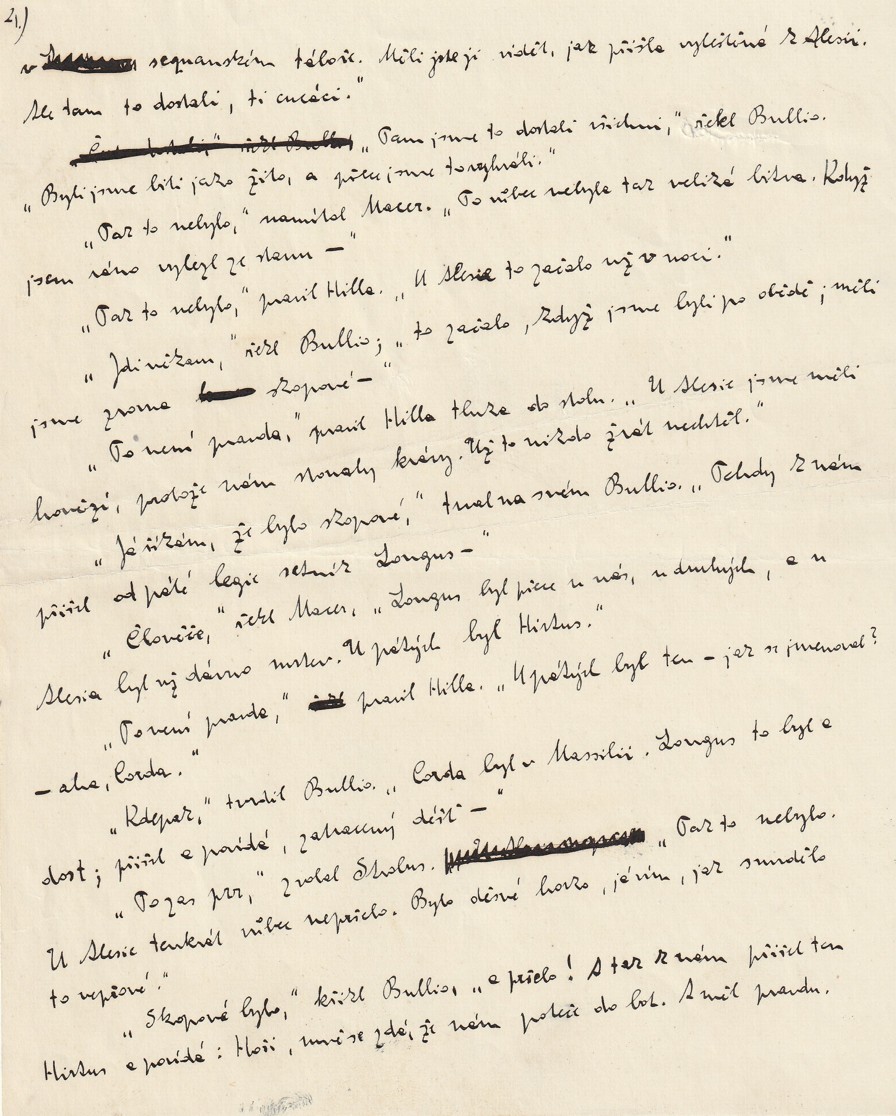 2.)
v sequanském táboře. Měli jste ji vidět, jak přišla vyleštěná k Alesii.
Ale tam to dostali, ti cucáci."
"Tam jsme to dostali všichni," řekl Bullio.
"Byli jsme biti jako žito, a přece jsme to vyhráli."
"Tak to nebylo," namítal Macer. "To vůbec nebyla tak veliká bitva. Když
jsem ráno vylezl ze stanu —"
"Tak to nebylo," pravil Hilla. "U Alesie to začalo už v noci."
"Jdi někam," řekl Bullio; "to začalo, když jsme byli po obědě; měli
jsme zrovna skopové —"
"To není pravda," pravil Hilla tluka do stolu. "U Alesie jsme měli
hovězí, protože nám stonaly krávy. Už to nikdo žrát nechtěl."
"Já říkám, že bylo skopové," trval na svém Bullio. "Tehdy k nám
přišel od páté legie setník Longus —"
"Člověče," řekl Macer, "Longus byl přece u nás, u druhých, a u
Alesia byl už dávno mrtev. U pátých byl Hirtus."
"To není pravda," pravil Hilla. "U pátých byl ten — jak se jmenoval?
— aha, Corda."
"Kdepak," tvrdil Bullio. "Corda byl v Massilii. Longus to byl a
dost; přišel a povídá, zatracený déšť —"
"To zas prr," zvolal Strobus. "Tak to nebylo.
U Alesie tenkrát vůbec nepršelo. Bylo děsné horko, já vím, jak smrdělo
to vepřové."
"Skopové bylo," křikl Bullio, "a pršelo! A tak k nám přišel ten
Hirtus a povídá: Hoši, mně se zdá, že nám poteče do bot. A měl pravdu.